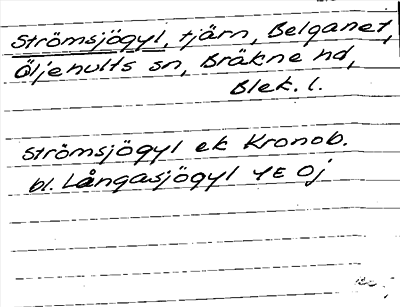 Strömsjögyl, tjärn, Belganet,
Öljehults sn, Bräkne hd,
Blek. l.
Strömsjögyl ek Kronob.
bl. Långasjögyl YE Oj